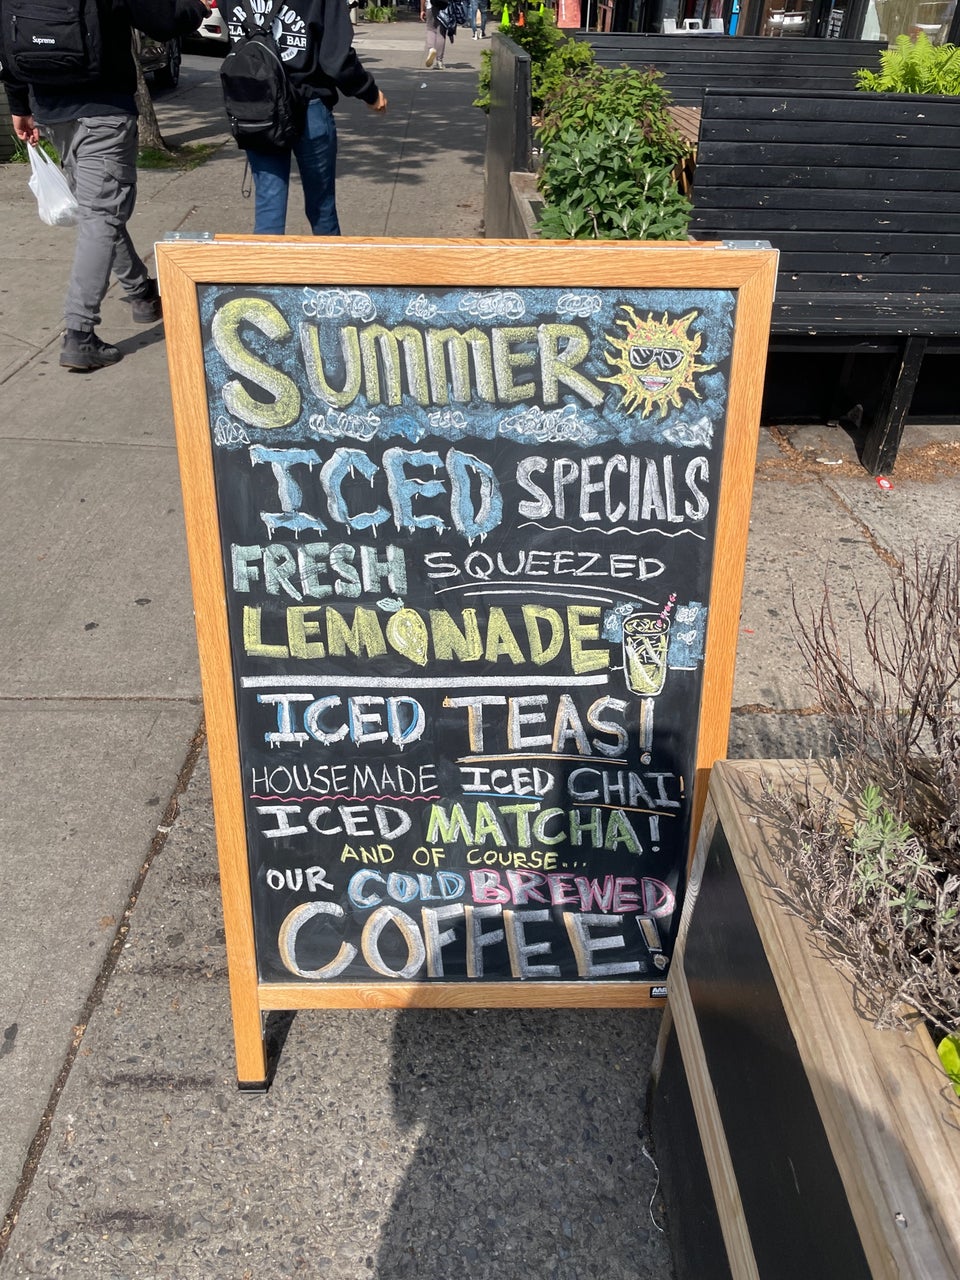 Supreme
SUMMER
ICED SPECIALS
FRESH SQUEEZED
LEMONADE
ICED TEAS!
HOUSEMADE ICED CHAI!
ICED MATCHA!
AND OF COURSE...
OUR COLD BREWED
COFFEE!